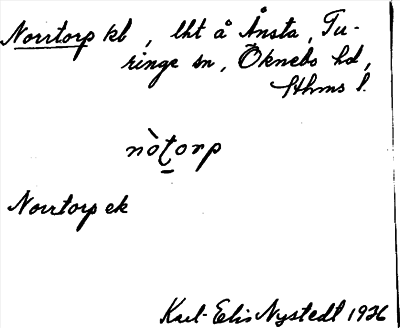 Norrtorp kb, lht å Ånsta, Tu-
ringe sn, Öknebo hd,
Sthms l.
nòtorp
Norrtorp ek
Karl-Elis Nystedt 1936